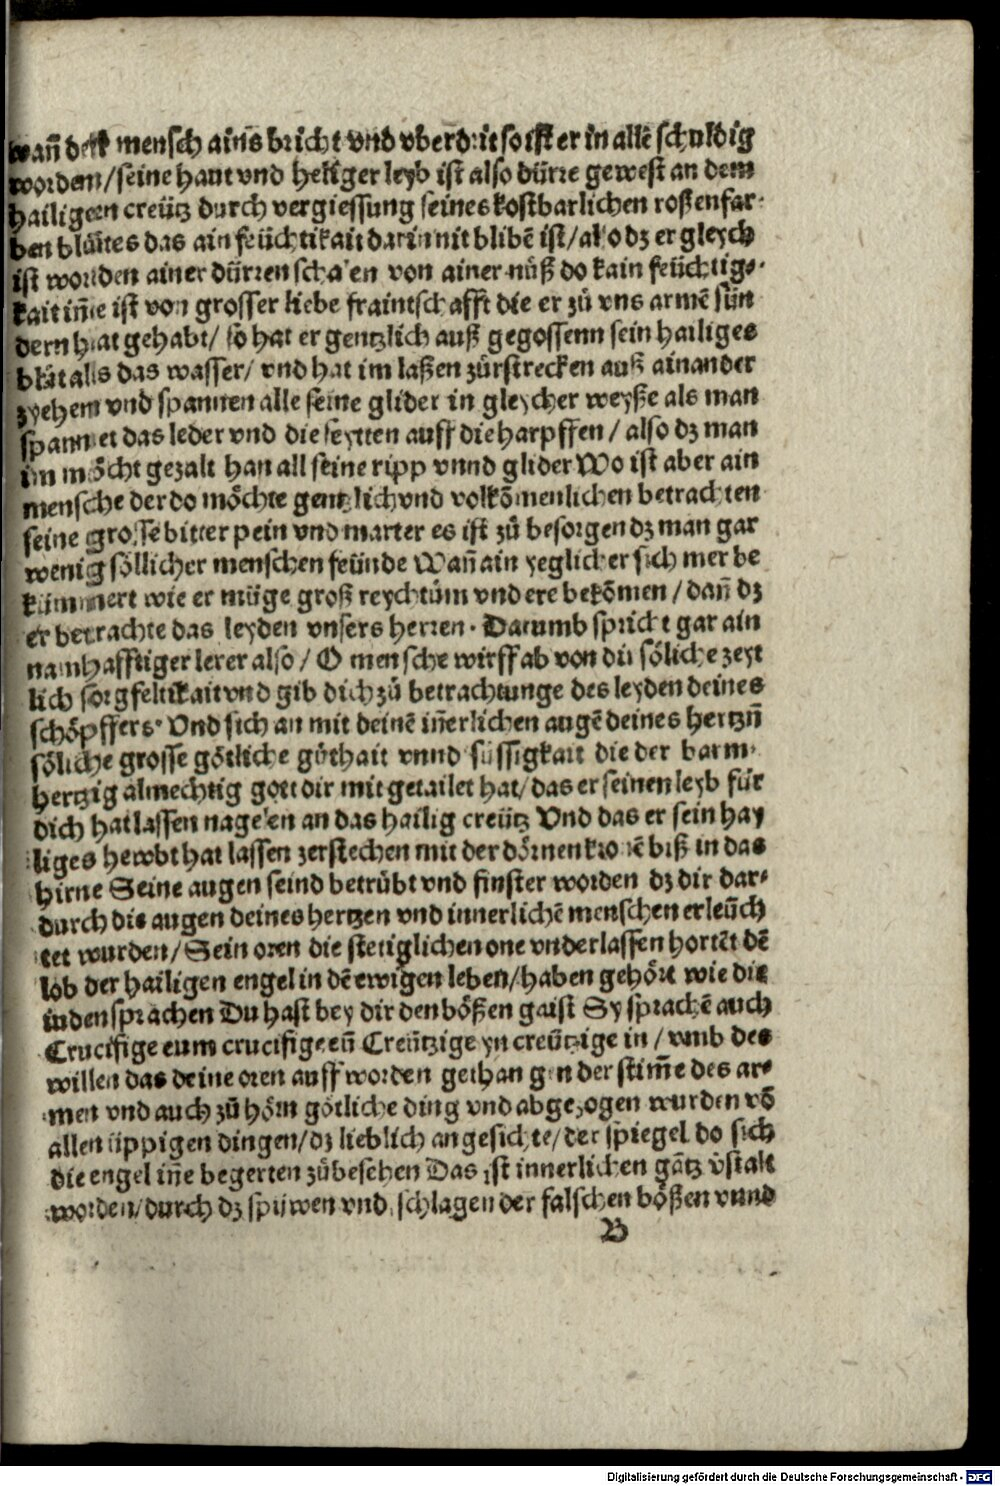 wan̄ der mensch ains bricht vnd vberdrit so ist er in allē schuldig
worden/seine haut vnd heiliger leyb ist also dürre gewest an dem
hailigen creütz durch vergiessung seines kostbarlichen roßenfar-
ben blůttes das ain feüchtikait darin nit blibē ist/also dz er gleych
ist worden ainer dürren schalen von ainer nuß do kain feüchtig-
kait in̄e ist von grosser liebe fraintschafft die er zů vns armē sün
dern hat gehabt/ so hat er gentzlich auß gegossenn sein hailiges
blůt alls das wasser/ vnd hat im laßen zůrstrecken auß ainander
zyehem vnd spannen alle seine glider in gleycher weyße als man
spannet das leder vnd die seytten auff die harpffen/ also dz man
im möcht gezalt han all seine ripp vnnd glider Wo ist aber ain
mensche der do möchte gentzlich vnd volkōmenlichen betrachten
seine grosse bitter pein vnd marter es ist zů besorgen dz man gar
wenig söllicher menschen feünde Wan̄ ain yeglicher sich mer be
kümmert wie er müge groß reychtům vnd ere bekōmen/ dan̄ dz
er betrachte das leyden vnsers herren. Darumb spricht gar ain
namhafftiger lerer also/ O mensche wirff ab von dir söliche zeyt
lich sorgfeltikait vnd gib dich zů betrachtunge des leyden deines
schöpffers. Vnd sich an mit deinē in̄erlichen augē deines hertzn̄
söliche grosse götliche gůthait vnnd süssigkait die der barm-
hertzig almechtig gott dir mit getailet hat/ das er seinen leyb für
dich hat lassen nagelen an das hailig creütz Vnd das er sein hay
liges hewbt hat lassen zerstechen mit der dörnen kronē biß in das
hirne Seine augen seind betrůbt vnd finster worden dz dir dar-
durch die augen deines hertzen vnd innerlichē menschen erleüch
tet wurden/ Sein oren die stetiglichen one vnderlassen hortēt dē
lob der hailigen engel in dē ewigen leben/haben gehört wie die
iuden sprachen Du hast bey dir den bößen gaist Sy sprachē auch
Crucifige eum crucifige eū Creützige yn creützige in/ vmb des
willen das deine oren auff worden gethan gen der stim̄e des ar-
men vnd auch zů hörn götliche ding vnd abgezogen wurden vō
allen üppigen dingen/dz lieblich angesichte/der spiegel do sich
die engel in̄e begerten zůbesehen Das ist innerlichen gātz v̄stalt
worden/durch dz spüwen vnd schlagen der falschen bößen vnnd
B
Digitalisierung gefördert durch die Deutsche Forschungsgemeinschaft - DFG